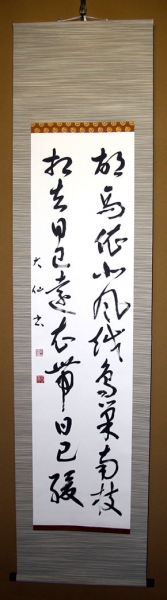 胡馬依北風越鳥巣南枝
相去日已遠衣帶日已緩
大仙書